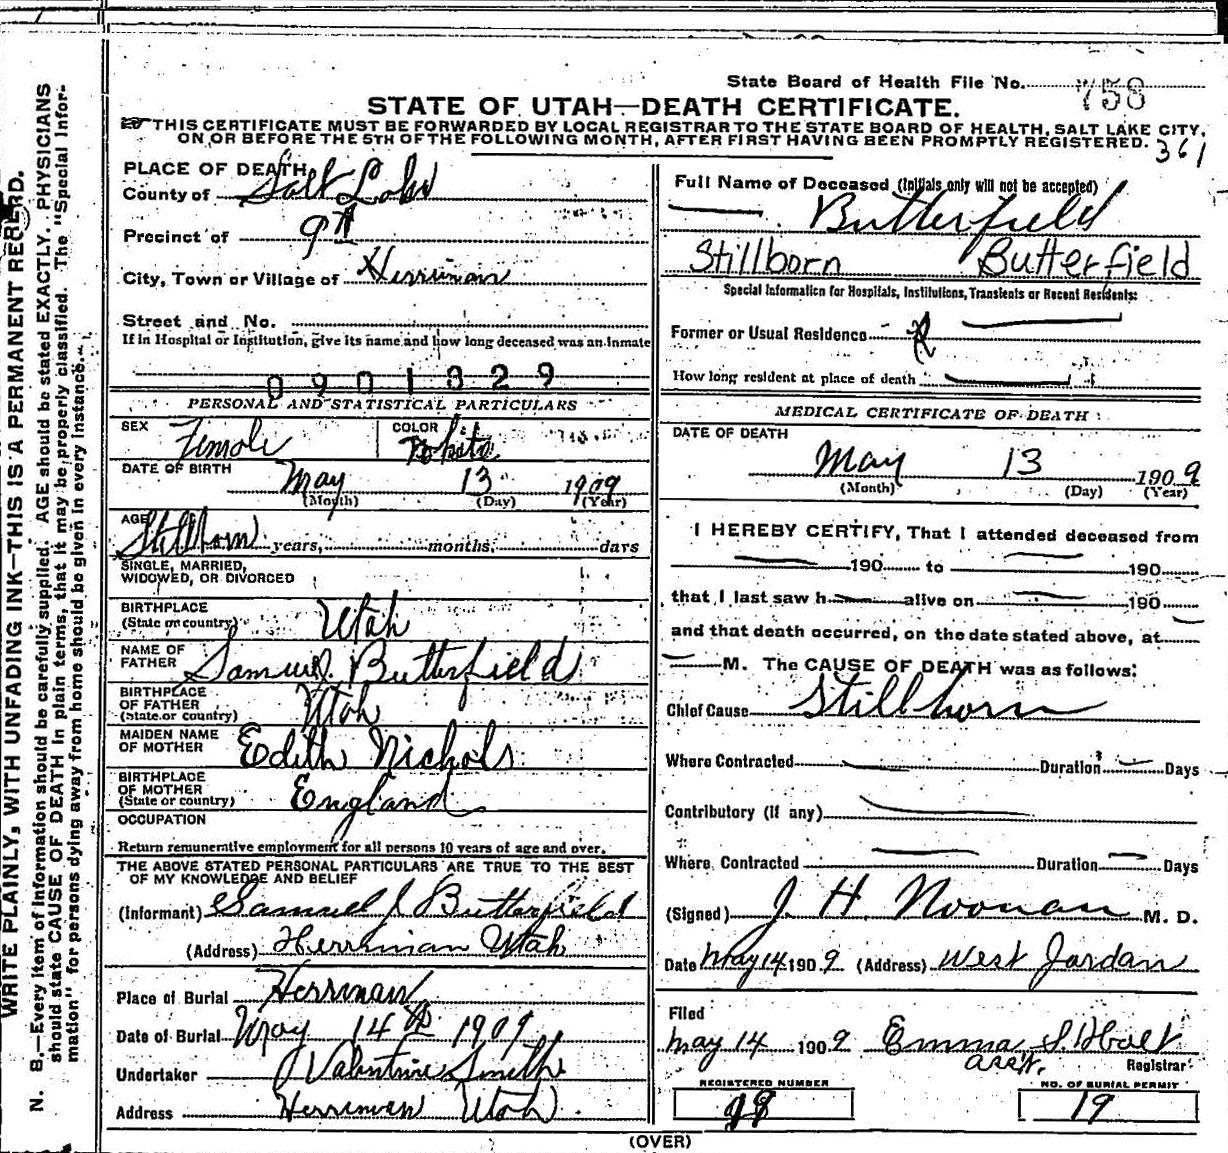 State Board of Health File No. 758
STATE OF UTAH—DEATH CERTIFICATE.
THIS CERTIFICATE MUST BE FORWARDED BY LOCAL REGISTRAR TO THE STATE BOARD OF HEALTH, SALT LAKE CITY,
ON OR BEFORE THE 5TH OF THE FOLLOWING MONTH, AFTER FIRST HAVING BEEN PROMPTLY REGISTERED.
361
WRITE PLAINLY, WITH UNFADING INK—THIS IS A PERMANENT RECORD.
N. B.—Every item of information should be carefully supplied. AGE should be stated EXACTLY. PHYSICIANS
should state CAUSE OF DEATH in plain terms, that it may be properly classified. The "Special Infor-
mation" for persons dying away from home should be given in every instance.
PLACE OF DEATH
County of Salt Lake
Precinct of 9th
City, Town or Village of Herriman
Street and No.
If in Hospital or Institution, give its name and how long deceased was an inmate
0901329
PERSONAL AND STATISTICAL PARTICULARS
SEX Female COLOR White
DATE OF BIRTH
May 13 1909
(Month) (Day) (Year)
AGE Stillborn years, months, days
SINGLE, MARRIED,
WIDOWED, OR DIVORCED
BIRTHPLACE
(State or country) Utah
NAME OF
FATHER Samuel J. Butterfield
BIRTHPLACE
OF FATHER
(State or country) Utah
MAIDEN NAME
OF MOTHER Edith Nichols
BIRTHPLACE
OF MOTHER
(State or country) England
OCCUPATION
Return remunerative employment for all persons 10 years of age and over.
THE ABOVE STATED PERSONAL PARTICULARS ARE TRUE TO THE BEST
OF MY KNOWLEDGE AND BELIEF
(Informant) Samuel J Butterfield
(Address) Herriman Utah
Place of Burial Herriman
Date of Burial May 14th 1909
Undertaker Valentine Smith
Address Herriman Utah
Full Name of Deceased (Initials only will not be accepted)
Butterfield
Stillborn Butterfield
Special Information for Hospitals, Institutions, Transients or Recent Residents:
Former or Usual Residence
How long resident at place of death
MEDICAL CERTIFICATE OF DEATH
DATE OF DEATH
May 13 1909
(Month) (Day) (Year)
I HEREBY CERTIFY, That I attended deceased from
190 to 190
that I last saw h alive on 190
and that death occurred, on the date stated above, at
M. The CAUSE OF DEATH was as follows:
Chief Cause Stillborn
Where Contracted Duration Days
Contributory (if any)
Where Contracted Duration Days
(Signed) J. H. Noonan M. D.
Date May 14 1909 (Address) West Jordan
Filed
May 14 1909 Emma S. Holt
Ass't. Registrar
REGISTERED NUMBER NO. OF BURIAL PERMIT
98 19
(OVER)